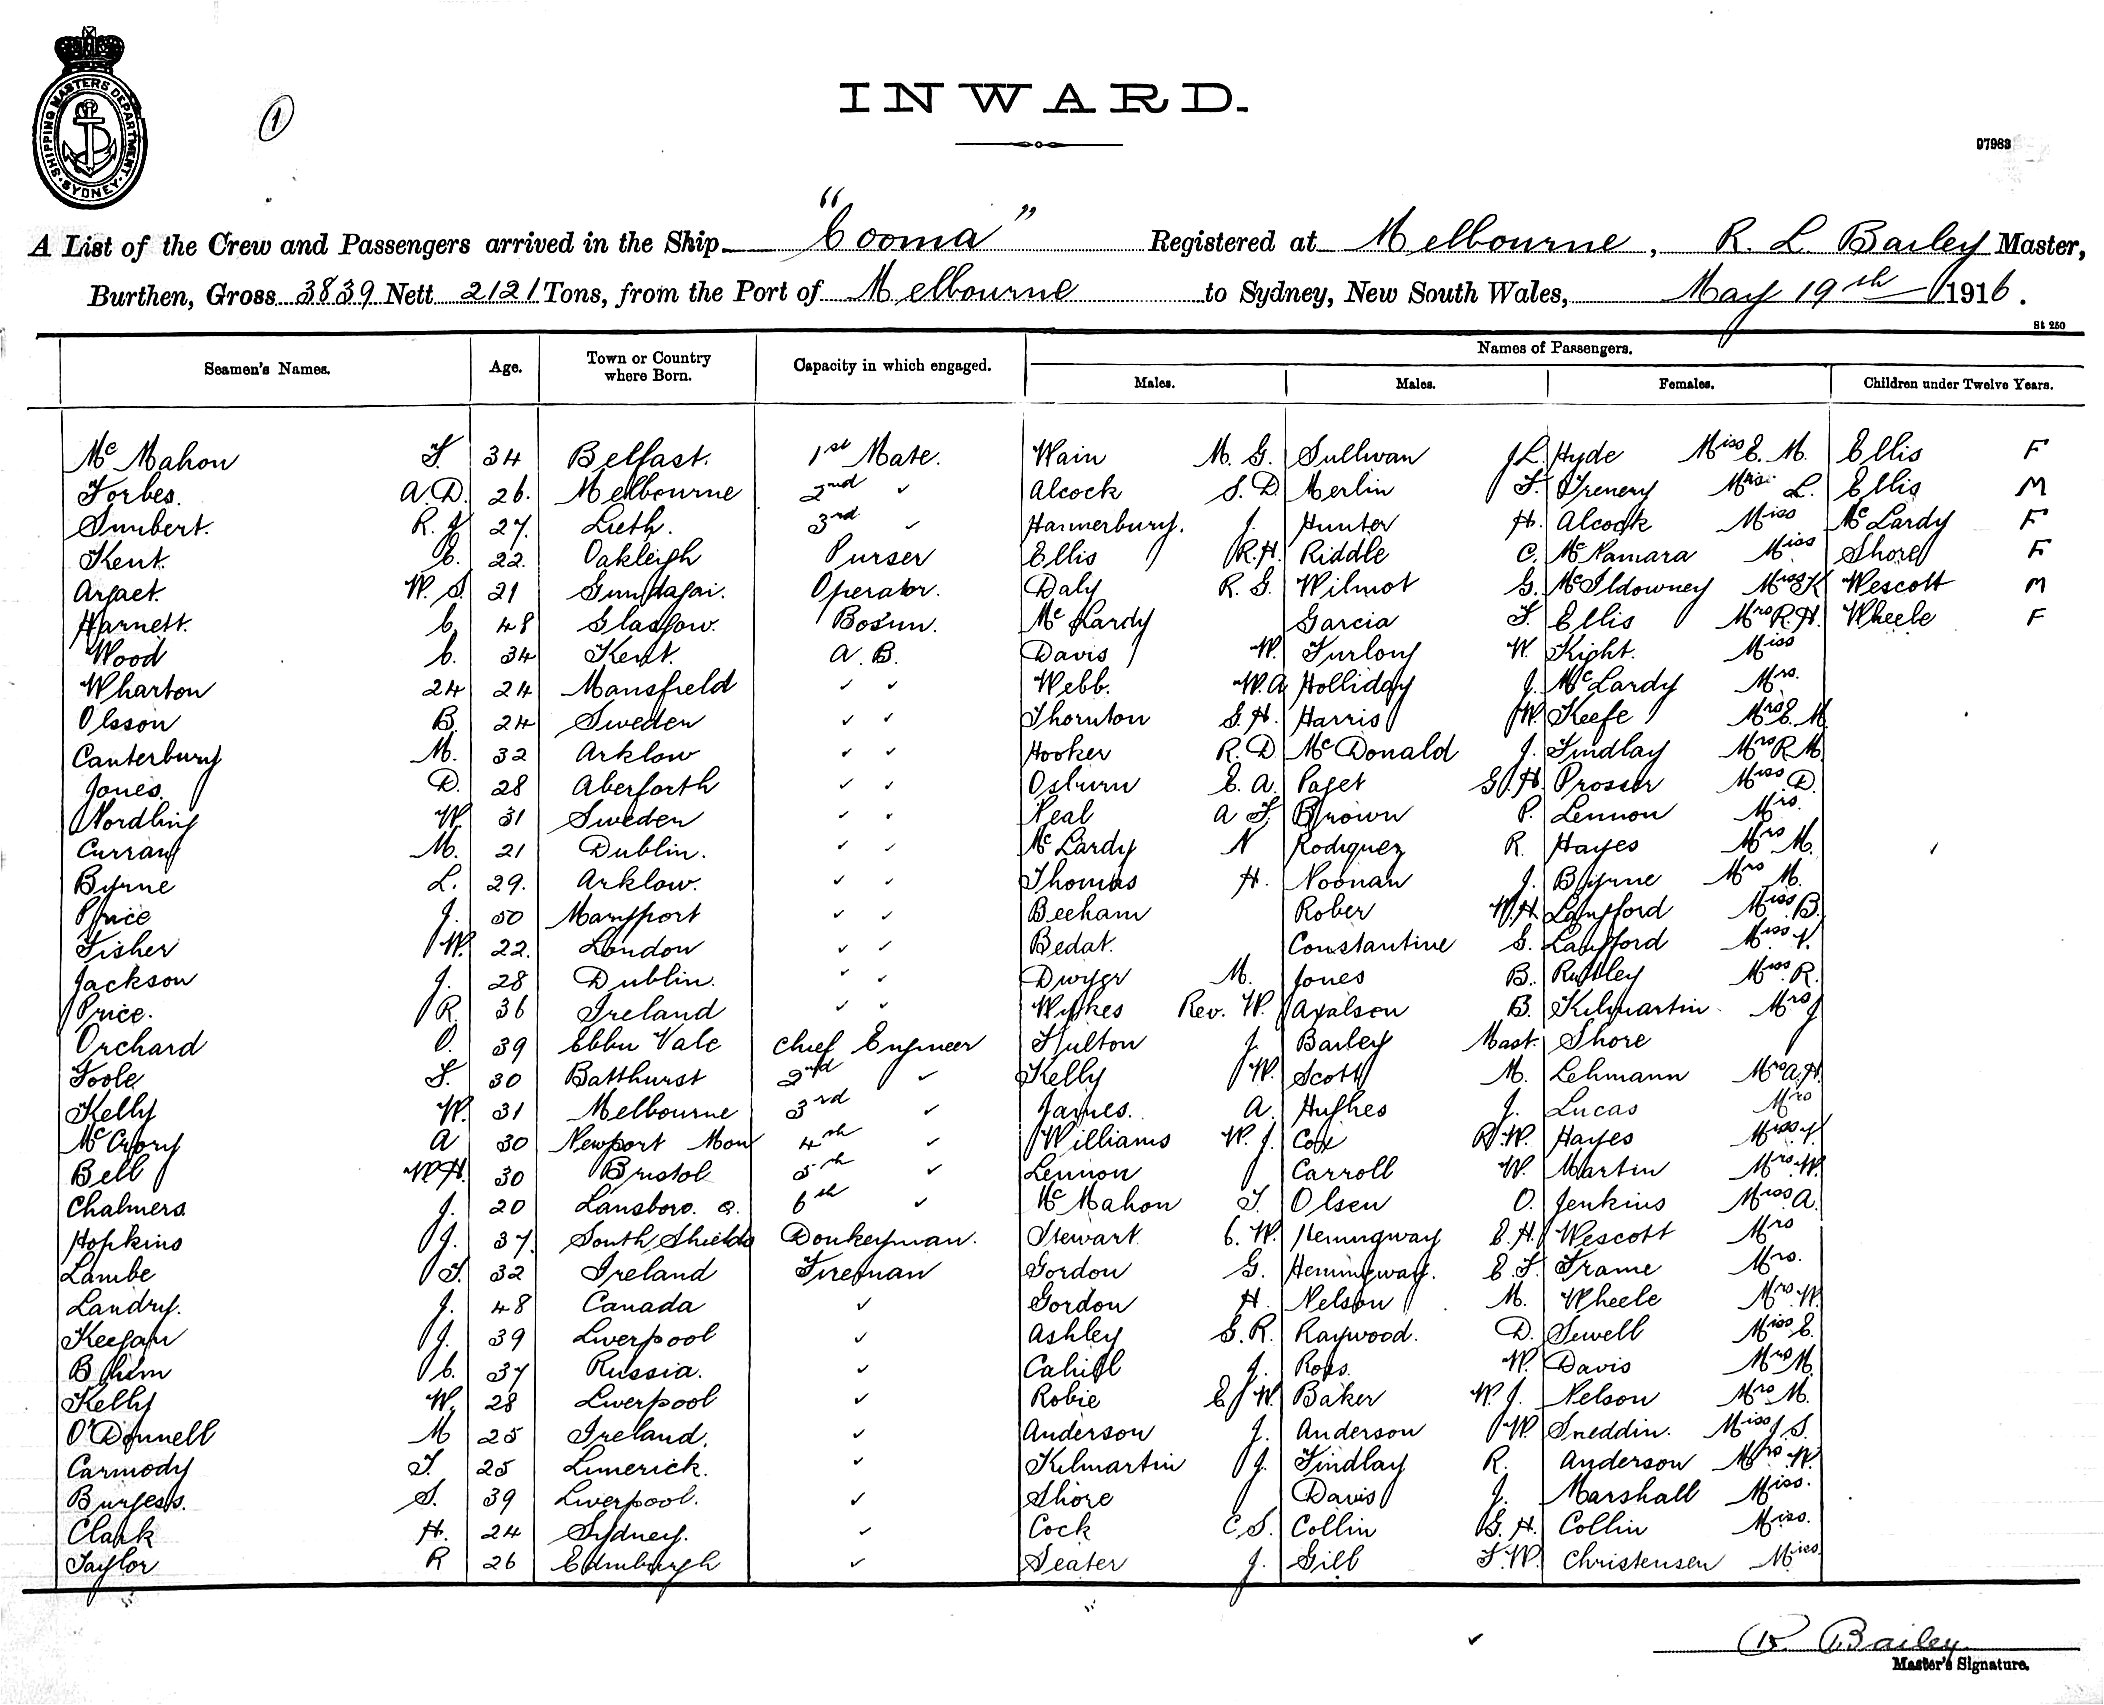 SHIPPING MASTERS DEPARTMENT. SYDNEY
1
INWARD.
97963
A List of the Crew and Passengers arrived in the Ship "Cooma" Registered at Melbourne, R. L. Bailey Master,
Burthen, Gross 3839 Nett 2121 Tons, from the Port of Melbourne to Sydney, New South Wales, May 19th 1916.
St 250
Seamen's Names. Age. Town or Country where Born. Capacity in which engaged. Names of Passengers.
Males. Males. Females. Children under Twelve Years.
Mc Mahon F. 34 Belfast. 1st Mate. Wain M. G. Sullivan J L. Hyde Miss E. M. Ellis F
Forbes. A D. 26. Melbourne 2nd ✓ Alcock S. D Merlin F. Trenery Mrs L. Ellis M
R. J 27. Lieth. 3rd ✓ Hannerbury. J. Hunter H. Alcock Miss Mc Lardy F
Kent. C. 22. Oakleigh Purser Ellis R.H. Riddle C. Mc Namara Miss Shore F
W. S. 21 Gundagai. Operator. Daly R. G. Wilmot G. McIldowney Miss K Wescott M
Harnett. C. 48 Glasgow. Bosun. Mc Lardy Garcia F. Ellis Mrs R.H. Wheele F
Wood C. 34 Kent. A. B. Davis W. Furlong W. Kight. Miss
Wharton 24 24 Mansfield ✓ ✓ Webb. W.A Holliday J. Mc Lardy Mrs.
Olsson B. 24 Sweden ✓ ✓ Thornton G. H. Harris W. Keefe Mrs E. M
Canterbury M. 32 Arklow ✓ ✓ Hooker R. D Mc Donald J. Findlay Mrs R M.
Jones. D. 28 Aberforth ✓ ✓ Osburn E. A. Paget G. H. Prosser Miss D.
Nordling W. 31 Sweden ✓ ✓ Neal A F. Brown P. Lennon Mrs.
Curran M. 21 Dublin. ✓ ✓ Mc Lardy N Rodriquez R. Hayes Mrs M.
Byrne L. 29. Arklow. ✓ ✓ Thomas H. Noonan J. Byrne Mrs M.
Price J. 50 Maryport ✓ ✓ Beeham Rober W.H. Langford Miss B.
Fisher W. 22. London ✓ ✓ Bedat. Constantine S. Langford Miss V.
Jackson J. 28 Dublin. ✓ ✓ Dwyer M. Jones B. Ruttley Miss R.
Price. R. 36 Ireland ✓ ✓ Wykes Rev. W. Axalson B. Kilmartin Mrs J
Orchard O. 39 Ebbu Vale Chief Engineer Hulton J. Bailey Mast. Shore
Toole F. 30 Batthurst 2nd ✓ Kelly W. Scott M. Lehmann Mrs A.H.
Kelly W. 31 Melbourne 3rd ✓ James. A. Hughes J. Lucas Mrs
Mc Crory A 30 Newport Mon 4th ✓ Williams W. J. Cox R.W. Hayes Miss V.
Bell W.H. 30 Bristol 5th ✓ Lennon Carroll W. Martin Mrs W.
Chalmers J. 20 Lansboro. Q. 6th ✓ Mc Mahon T. Olsen O. Jenkins Miss A.
Hopkins J. 37. South Shields Donkeyman. Stewart C. W. Hemingway E. H. Wescott Mrs
Lambe T. 32 Ireland Fireman Gordon G. Hemingway. E. F. Frame Mrs.
Landry. J. 48 Canada ✓ Gordon H. Nelson M. Wheele Mrs W.
Keegan J. 39 Liverpool ✓ Ashley G. R. Raywood. D. Sewell Miss E.
C. 37 Russia. ✓ Cahill J. Ross. W. Davis Mrs M.
Kelly W. 28 Liverpool ✓ Robie E W. Baker W. J. Nelson Mrs M.
O'Donnell M 25 Ireland. ✓ Anderson J. Anderson W. Sneddin. Miss J. S.
Carmody T. 25 Limerick. ✓ Kilmartin J. Findlay R. Anderson Mrs W.
Burgess. S. 39 Liverpool. ✓ Shore Davis J. Marshall Miss.
Clark H. 24 Sydney. ✓ Cock C S. Collin G. H. Collin Miss.
Taylor R 26 Edinburgh ✓ Seater J. Gill F. W. Christensen Miss
✓
R Bailey
Master's Signature.